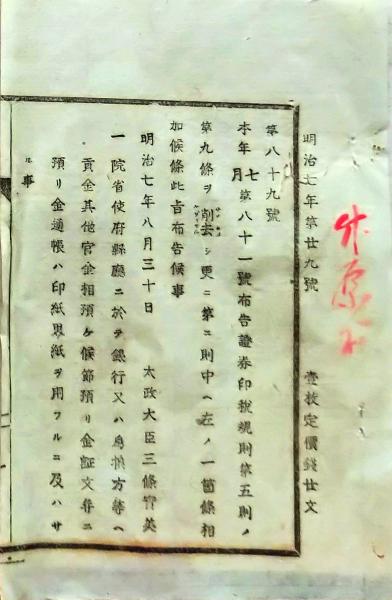 明治七年第廿九號
壹枚定價錢廿文
第八十九號
本年七月第八十一號布告證券印稅規則第五則ノ
第九條ヲ削去シ更ニ第二則中ヘ左ノ一箇條相
加候條此旨布告候事
明治七年八月三十日 太政大臣三條實美
一 院省使府縣廳ニ於テ銀行又ハ爲換方等ヘ
貢金其他官金相預ケ候節預リ金証文幷ニ
預リ金通帳ハ印紙界紙ヲ用フルニ及ハサ
ル事